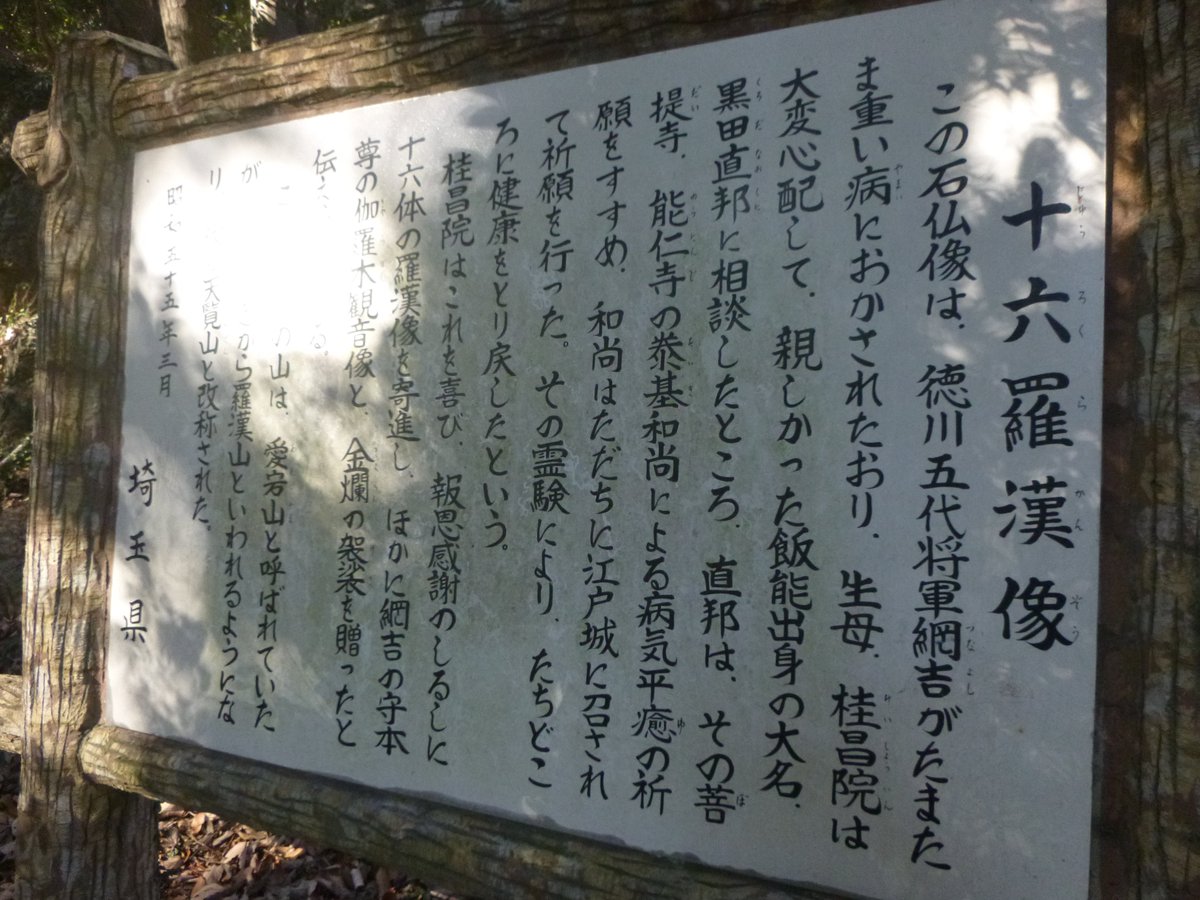 十六羅漢像
この石仏像は、徳川五代将軍綱吉がたまた
ま重い病におかされたおり、生母、桂昌院は
大変心配して、親しかった飯能出身の大名、
黒田直邦に相談したところ、直邦は、その菩
提寺、能仁寺の泰基和尚による病気平癒の祈
願をすすめ、和尚はただちに江戸城に召され
て祈願を行った。その霊験により、たちどこ
ろに健康をとり戻したという。
桂昌院はこれを喜び、報恩感謝のしるしに
十六体の羅漢像を寄進し、ほかに綱吉の守本
尊の伽羅木観音像と、金爛の袈裟を贈ったと
伝る。
の山は、愛宕山と呼ばれていた
がから羅漢山といわれるようにな
り天覧山と改称された。
昭和五十五年三月
埼玉県